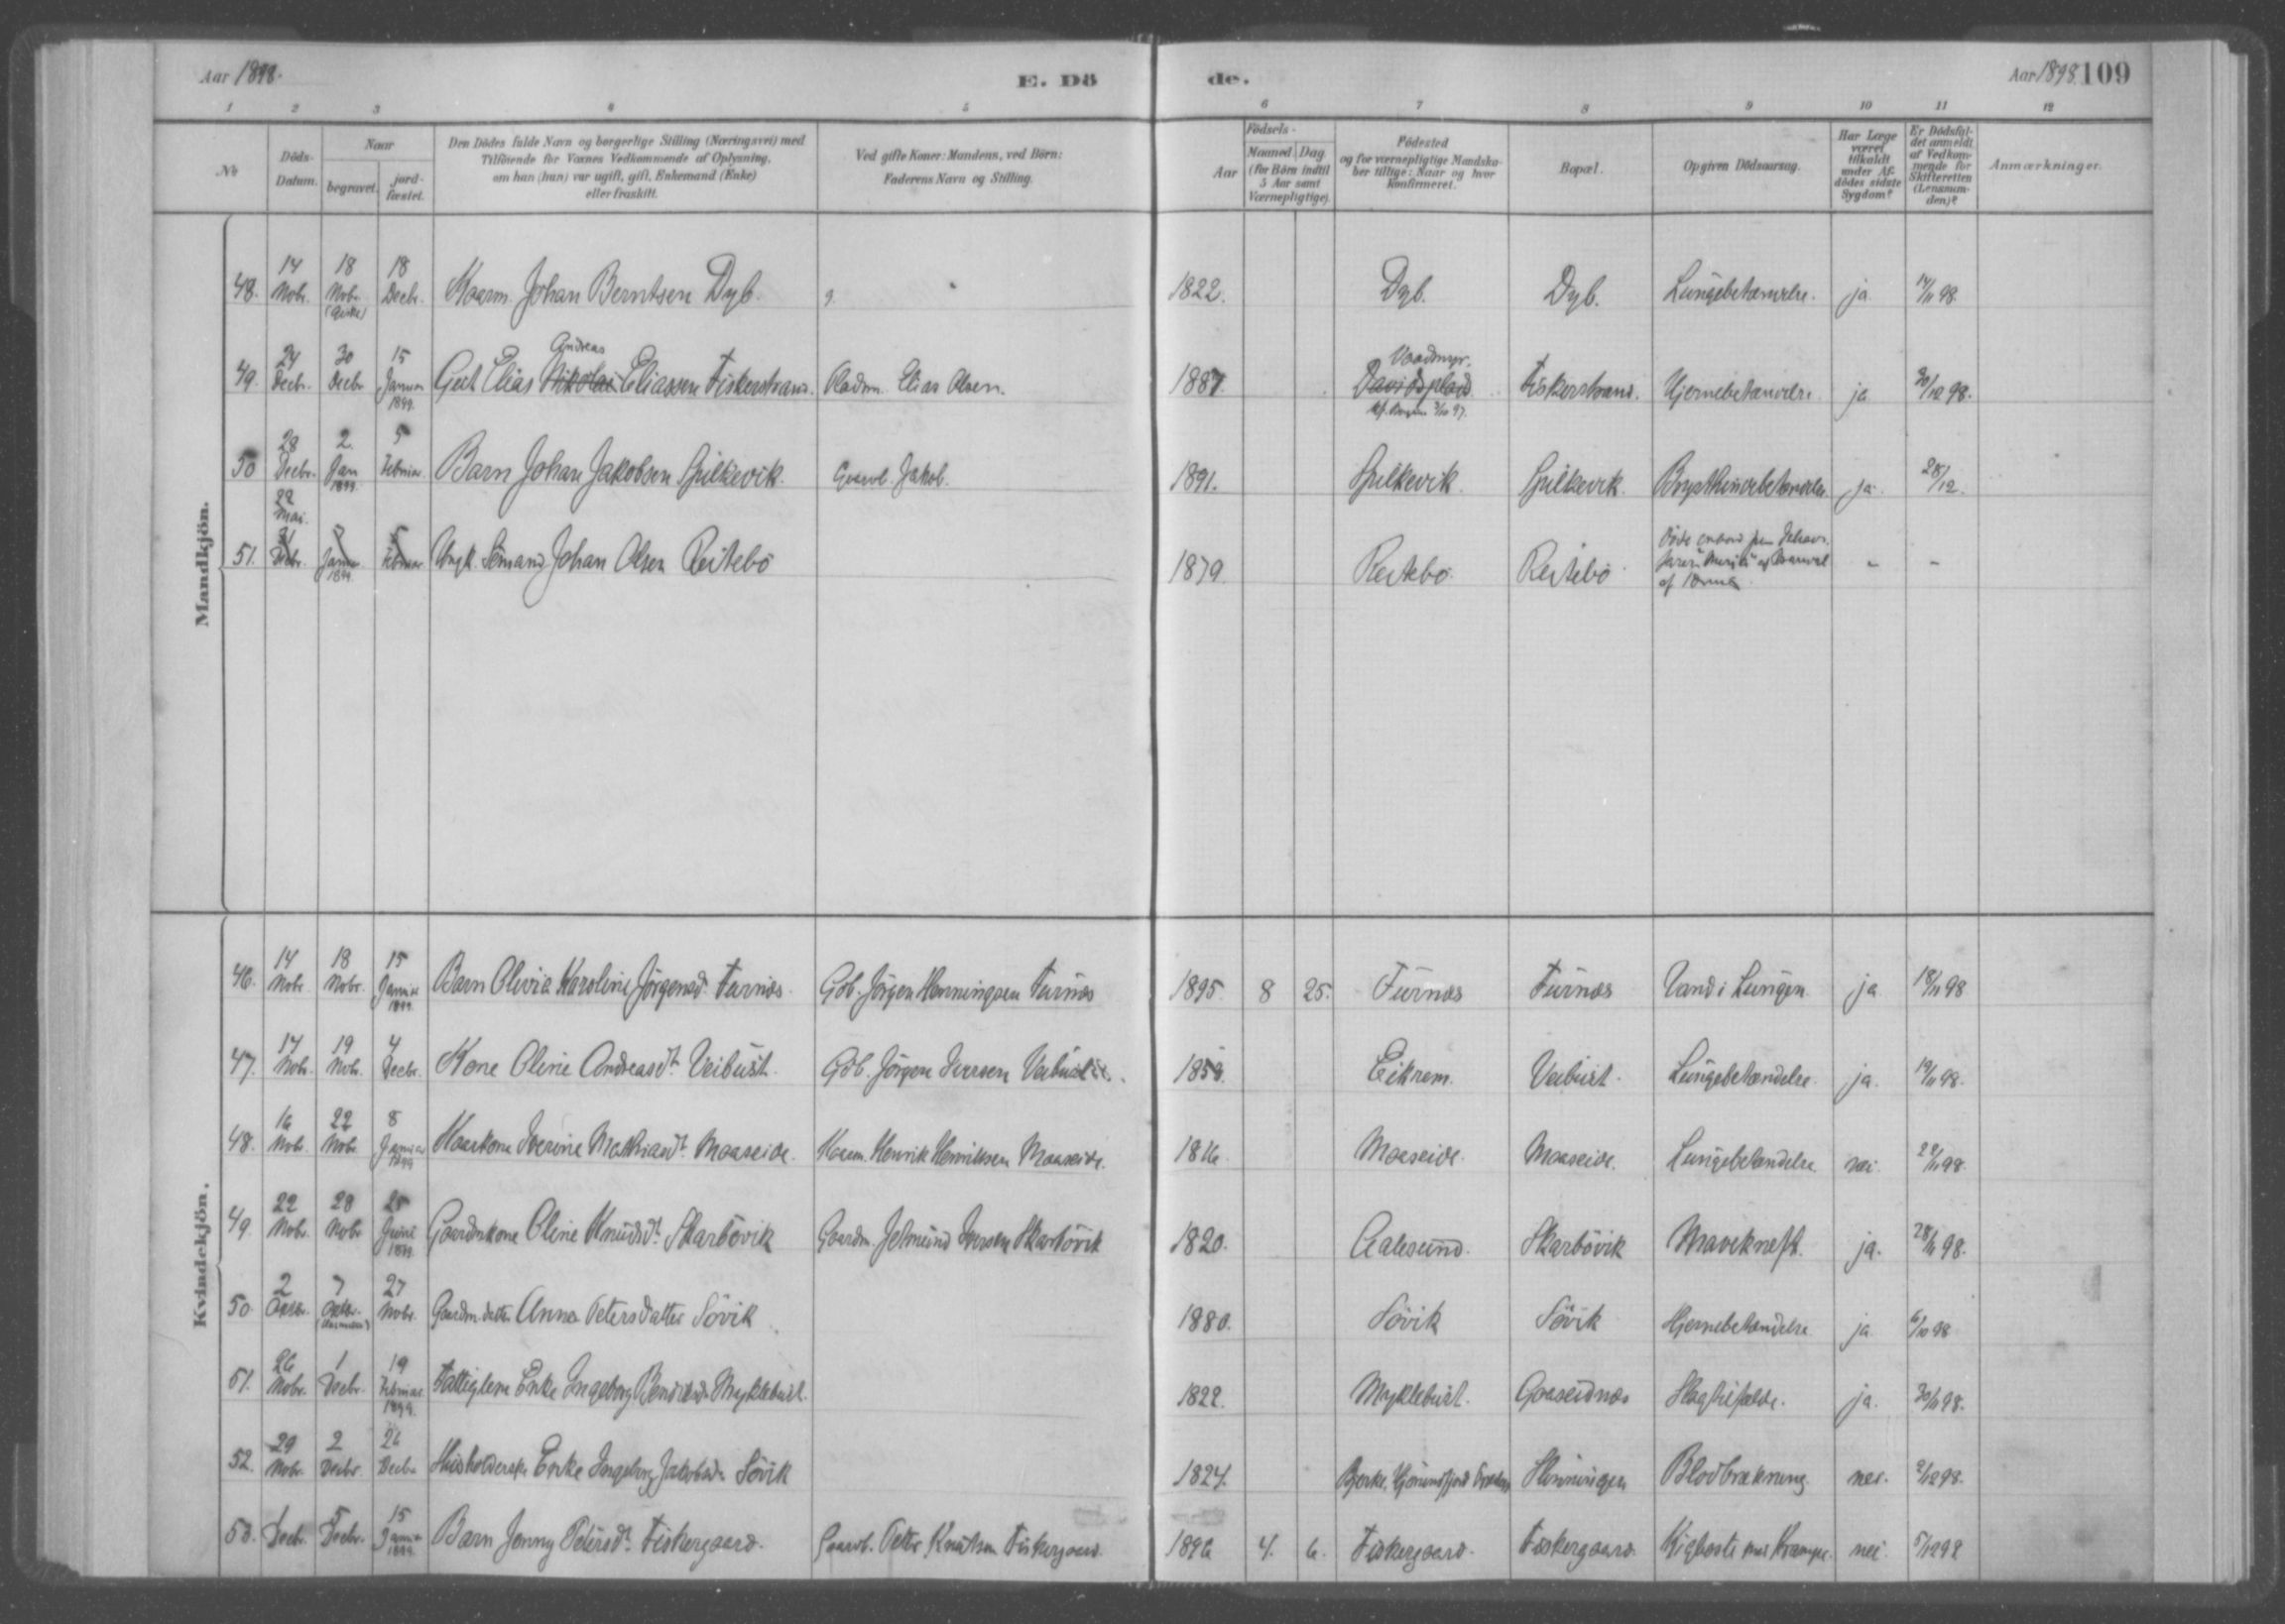 Aar 1898. E. Dö de. Aar 1898. 109
1 2 3 4 5 6 7 8 9 10 11 12
No
Döds-Datum.
Naar
begravet.
jord-fæstet.
Den Dödes fulde Navn og borgerlige Stilling (Næringsvei) med
Tilföiende for Voxnes Vedkommende af Oplysning,
om han (hun) var ugift, gift, Enkemand (Enke)
eller fraskilt.
Ved gifte Koner: Mandens, ved Börn:
Faderens Navn og Stilling.
Födsels-
Aar
Maaned
Dag
(for Börn indtil
5 Aar samt
Værnepligtige)
Födested
og for værnepligtige Mandska-
ber tillige: Naar og hvor
Konfirmeret.
Bopæl.
Opgiven Dödsaarsag.
Har Læge
været
tilkaldt
under Af-
dödes sidste
Sygdom?
Er Dödsfal-
det anmeldt
af Vedkom-
mende for
Skifteretten
(Lensman-
den)?
Anmærkninger.
Mandkjön.
48. 14 Nobr. 18 Nobr. 18 Decbr. Kaarm. Johan Berntsen Dyb. 1822. Dyb. Dyb. Lungebetændelse. ja 14/11 98.
49. 24 Decbr. 30 Decbr 15 Januar 1899. Elias Nikolai Andreas Eliassen Fiskerstrand. Elias Olsen. 1887. Davidsplads Fiskerstrand. Hjernebetændelse ja 30/12 98.
50 28 Decbr. 2 Jan 1899 5 Februar. Barn Johan Jakobsen Spilkevik. Gaardb. Jakob. 1891. Spilkevik. Spilkevik. Brysthindebetændelse ja. 28/12.
51. 22 Mai. 31 Decbr. Januar 1899 5 Februar Ungk. Sömand Johan Olsen Reitebö 1879. Reitebö. Reitebö Döde ombord paa - -
Kvindekjön.
46. 14 Nobr. 18 Nobr. 15 Januar 1899. Barn Olivia Karoline Jörgensd. Furnæs. Gdb. Jörgen Henningsen Furnæs 1895. 8 25. Furnæs Furnæs Vand i Lungen ja 18/11 98
47. 14 Nobr. 19 Nobr. 4 Decbr. Kone Oline Andreasdt. Veibust. Gdb. Jörgen Iversen Veibust. 1859. Eikrem. Veibust. Lungebetændelse. ja. 19/11 98.
48. 16 Nobr. 22 Nobr 8 Januar 1899 Kaarkone Iverine Mathiasdt. Maaseide. Kaarm. Henrik Henriksen Maaseide. 1816. Maaseide. Maaseide. Lungebetændelse nei. 22/11 98.
49. 22 Nobr. 28 Nobr 25 Juni 1899. Gaardmkone Oline Knudsdt. Skarbövik Gaardm. Jetmund Iversen Skarbövik 1820. Aalesund. Skarbövik Mavekræft. ja. 28/11 98.
50. 2 Oktbr. 7 Oktbr. 27 Nobr. Gaardm. datter Anna Petersdatter Sövik 1880. Sövik Sövik Hjernebetændelse ja 6/10 98
51. 26 Nobr. 1 Decbr. 19 Februar 1899. Fattiglem Enke Ingeborg Myklebust. 1822. Myklebust. Gaaseidnæs Slagtilfælde. ja. 30/11 98.
52. 29 Nobr. 2 Decbr. 26 Decbr Husholderske Enke Ingeborg Jakobsdr. Sövik 1824. Bjerke, Hjörundfjord Blodbrækning nei. 2/12 98.
53. 1 Decbr. 5 Decbr. 15 Januar 1899. Barn Jenny Petersdt. Fiskergaard. Gaardb. Petter Knutsen Fiskergaard. 1896 4. 6. Fiskergaard. Fiskergaard. Kighoste med Krampe. nei. 5/12 98